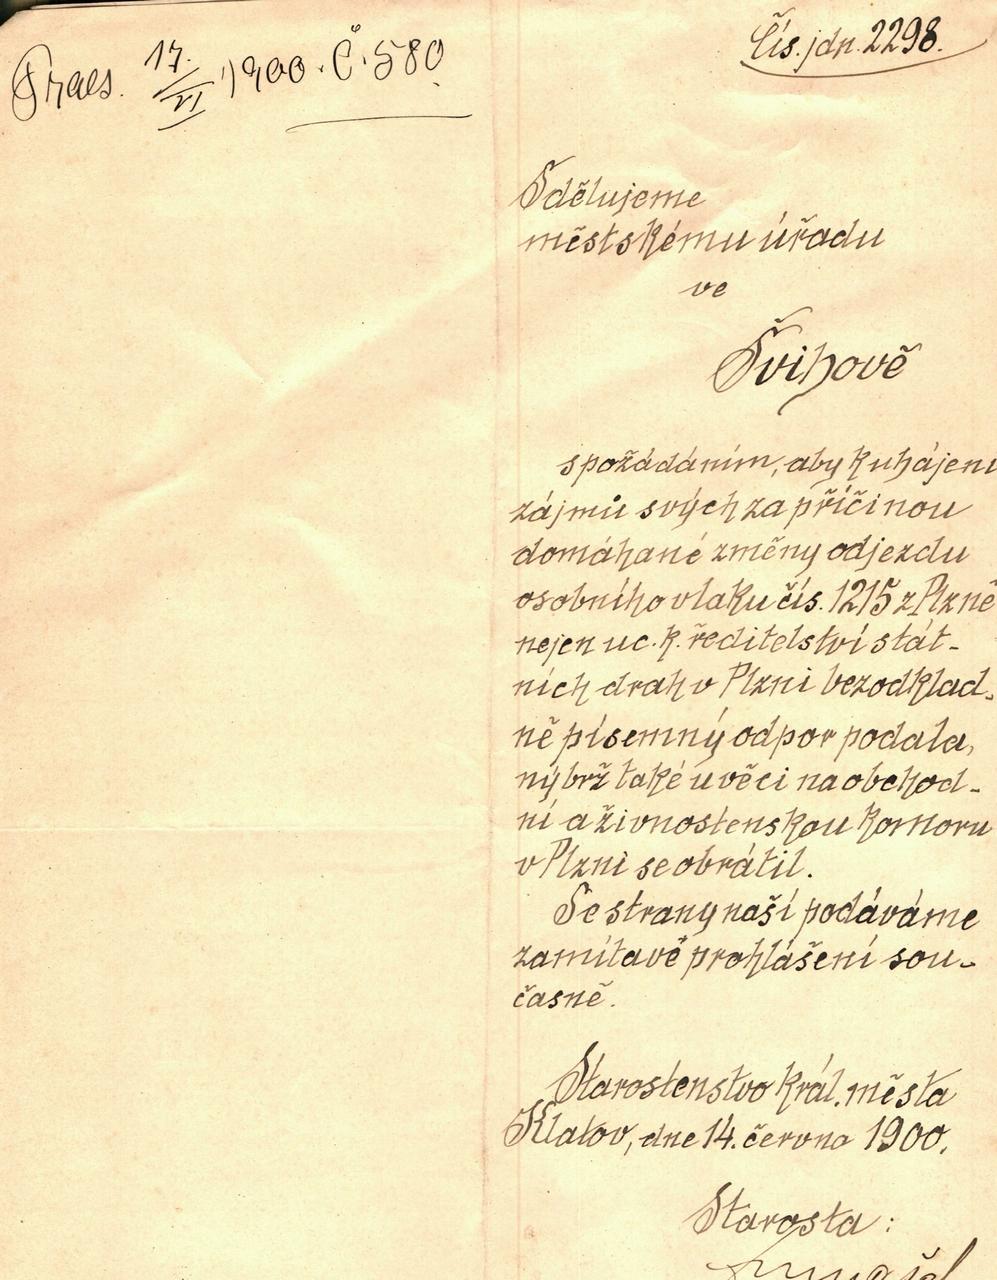 Čís. jdn. 2298.
Praes. 17./VI 1900. Č. 580
Sdělujeme
městskému úřadu
ve
Švihově
s požádáním, aby k uhájení
zájmů svých za příčinou
domáhané změny odjezdu
osobního vlaku čís. 1215 z Plzně
nejen u c. k. ředitelství stát-
ních drah v Plzni bezodklad-
ně písemný odpor podala,
nýbrž také u věci na obchod-
ní a živnostenskou komoru
v Plzni se obrátil.
Se strany naší podáváme
zamítavé prohlášení sou-
časně.
Starostenstvo král. města
Klatov, dne 14. června 1900.
Starosta: